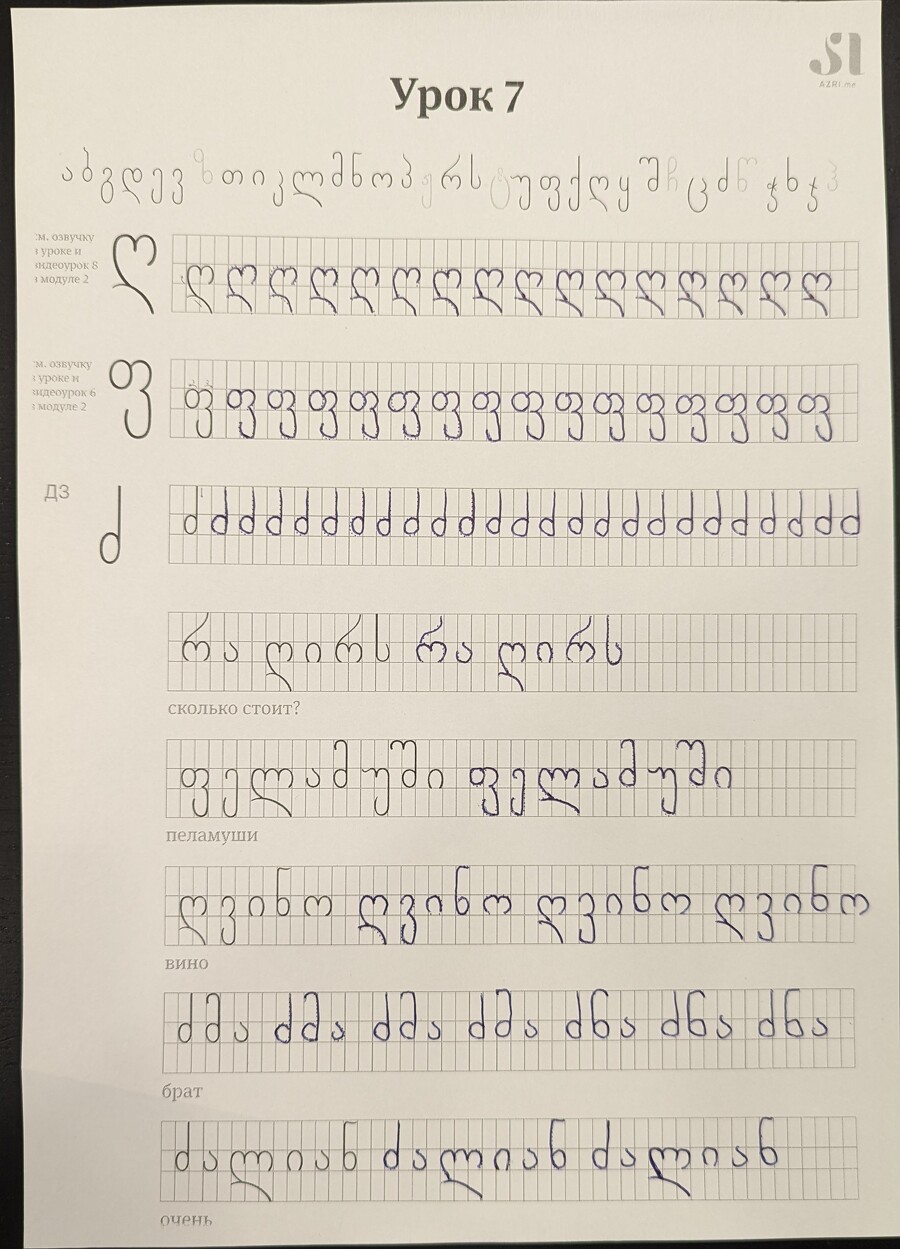 SI
AZRI.me
Урок 7
ა ბ გ დ ე ვ ზ თ ი კ ლ მ ნ ო პ ჟ რ ს ტ უ ფ ქ ღ ყ შ ჩ ც ძ წ ჭ ხ ჯ ჰ
м. озвучку
уроке и
идеоурок 8
модуле 2
ღ ღ ღ ღ ღ ღ ღ ღ ღ ღ ღ ღ ღ ღ ღ ღ ღ
м. озвучку
уроке и
идеоурок 6
модуле 2
ფ ფ ფ ფ ფ ფ ფ ფ ფ ფ ფ ფ ფ ფ ფ ფ ფ
ДЗ
ძ ძ ძ ძ ძ ძ ძ ძ ძ ძ ძ ძ ძ ძ ძ ძ ძ ძ ძ ძ ძ ძ ძ ძ ძ ძ
რა ღირს რა ღირს
сколько стоит?
ფელამუში ფელამუში
пеламуши
ღვინო ღვინო ღვინო ღვინო
вино
ძმა ძმა ძმა ძმა ძნა ძნა ძნა
брат
ძალიან ძალიან ძალიან
очень